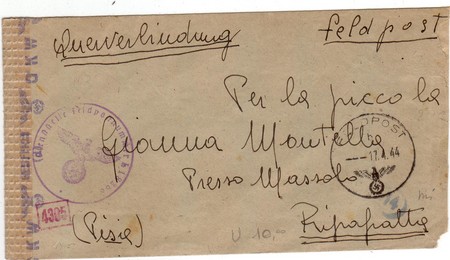 Querverbindung
Feldpost
Per la piccola
Gianna Montella
Presso Massolo
(Pisia)
Ripapatta
FELDPOST
17.4.44
4305
U 10,-
OKW